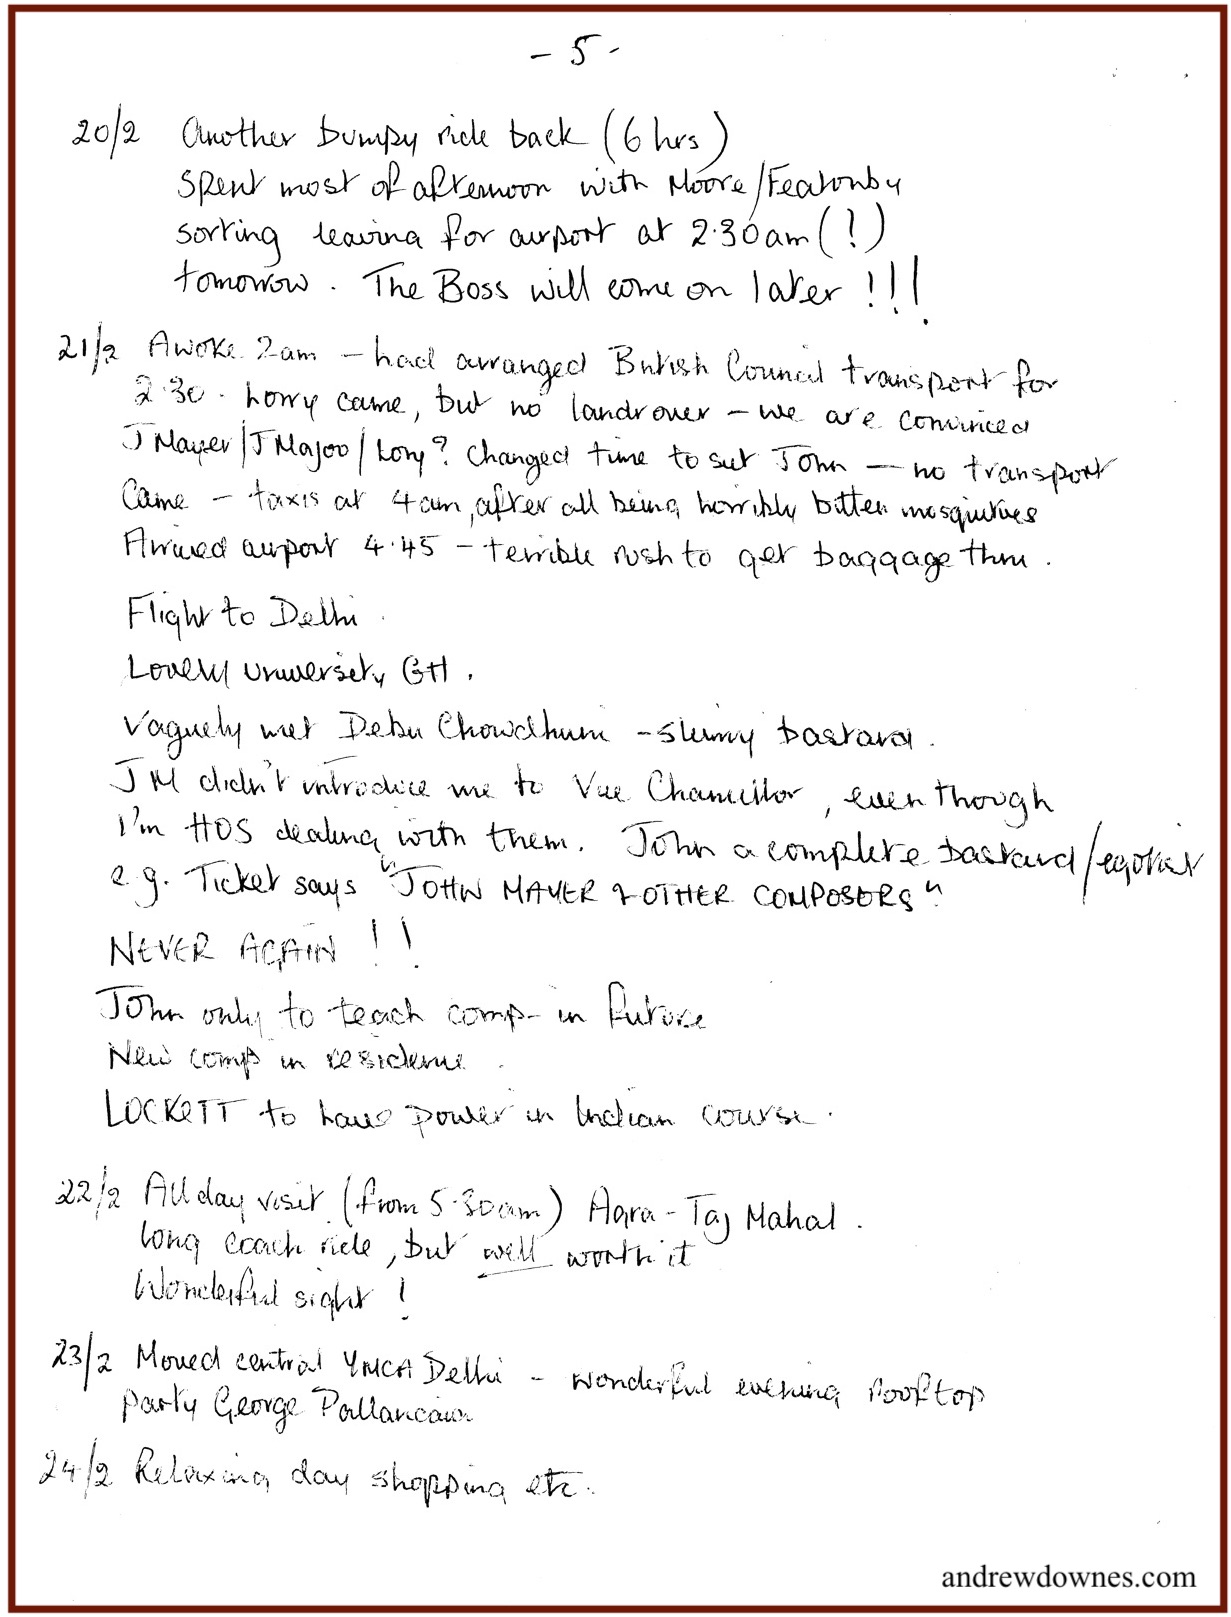 - 5 -
20/2 Another bumpy ride back (6 hrs)
Spent most of afternoon with Moore/Featonby
sorting leaving for airport at 2.30am (!)
tomorrow. The Boss will come on later !!!
21/2 Awoke 2am - had arranged British Council transport for
2.30. Lorry came, but no landrover - we are convinced
J Mayer/J Majoo/Lory? changed time to suit John - no transport
came - taxis at 4am, after all being horribly bitten mosquitoes
Arrived airport 4.45 - terrible rush to get baggage thru.
Flight to Delhi.
Lovely University GH.
Vaguely met Debu Chowdhuri - slimy bastard.
JM didn't introduce me to Vice Chancellor, even though
I'm HOS dealing with them. John a complete bastard/egotist
e.g. Ticket says "JOHN MAYER & OTHER COMPOSERS"
NEVER AGAIN !!
John only to teach comp- in future
New comp in residence.
LOCKETT to have power in Indian course.
22/2 All day visit (from 5.30am) Agra - Taj Mahal.
long coach ride, but well worth it
Wonderful sight!
23/2 Moved central YMCA Delhi - wonderful evening rooftop
party George
24/2 Relaxing day shopping etc.
andrewdownes.com